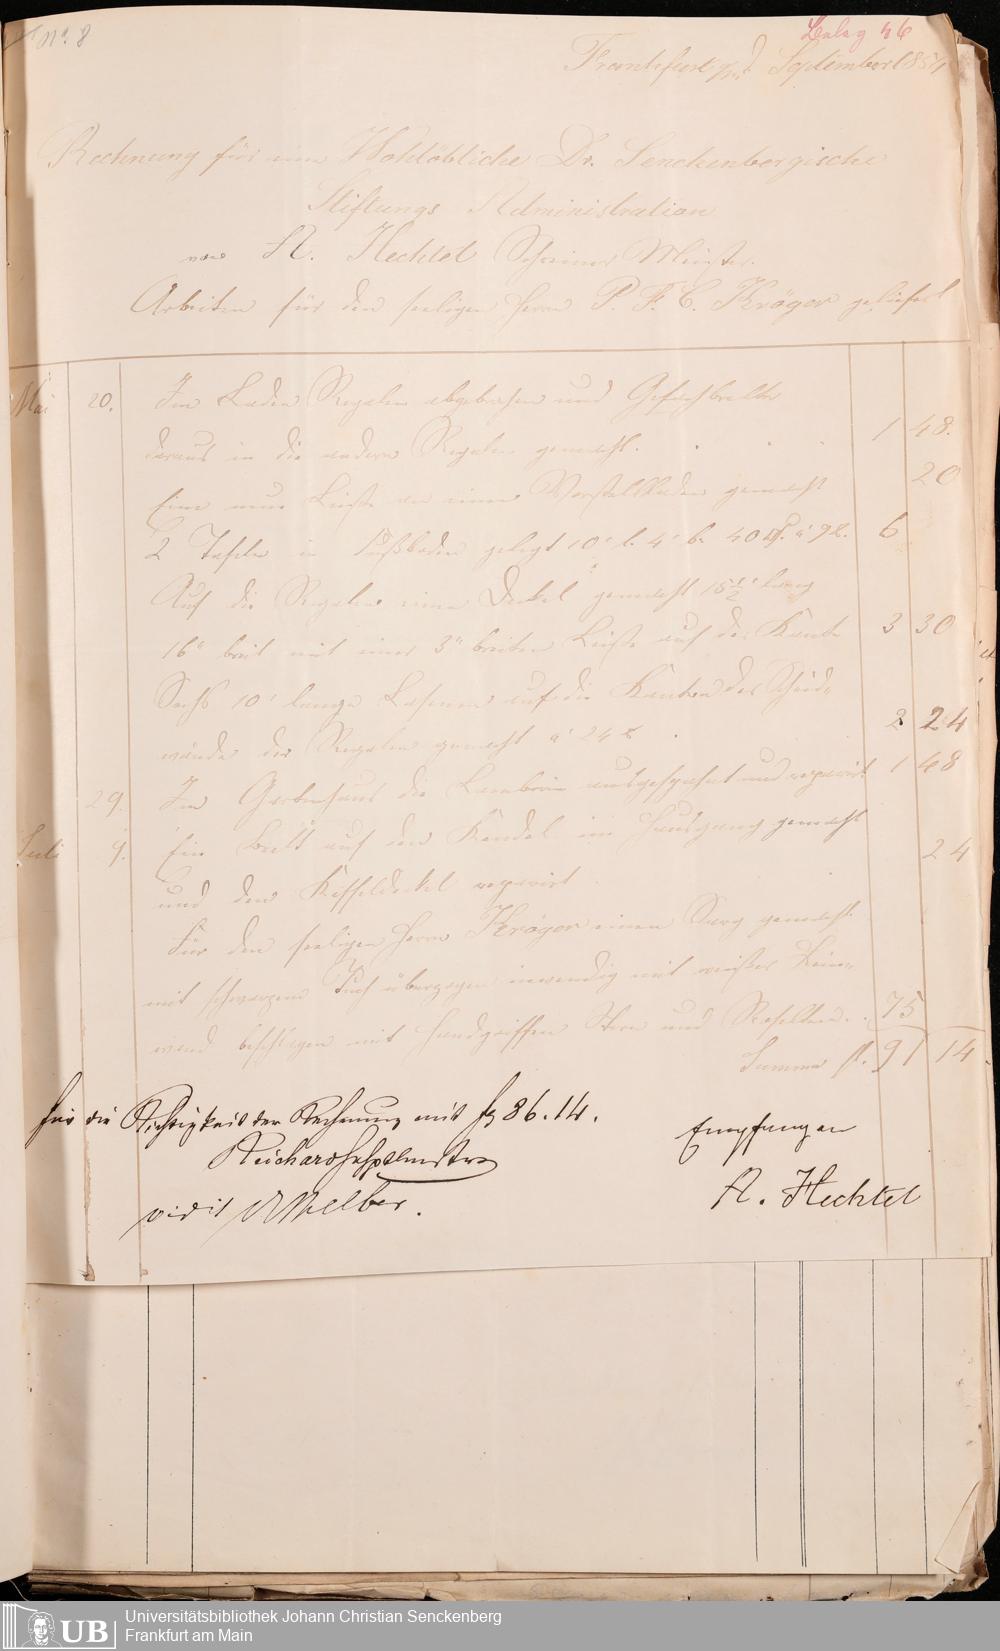 No. 8
Beleg 46
Frankfurt September 1854
Rechnung für eine Wohlöbliche Dr. Senckenbergische
Stiftungs Administration
von A. Hechtel Schreiner Meister.
Arbeiten für den seeligen Herrn P. F. C. Kröger geliefert
Mai 20. Im Laden Regalen abgebrochen und Gefachbretter
daraus in die andern Regalen gemacht. 1 48.
Eine neue Leiste an einen Vorstellladen gemacht 20
2 Tafeln in Fußboden gelegt 10' l. 4' b. 40 à 9 x. 6
Auf die Regalen einen Deckel gemacht 15½' lang
16" breit mit einer 3" breiten Leiste auf der Kante 3 30
Sechs 10' lange Lisenen auf die Kanten der Scheid-
wände der Regalen gemacht a' 24 x 2 24
29. Im Gartenhaus die Lamberie ausgespahnt und reparirt 1 48
Juli 9. Ein Brett auf den Kandel im Hausgang gemacht 24
und den Kesseldeckel reparirt
Für den seeligen Herrn Kröger einen Sarg gemacht
mit schwarzem Tuch überzogen inwendig mit weißer Lein-
wand beschlagen mit Handgriffen Stern und Rosetten. 75
Summa fl. 91 14
für die Richtigkeit der Rechnung mit f 86.14.
Empfangen
A. Hechtel
vidit Melber.
Universitätsbibliothek Johann Christian Senckenberg
Frankfurt am Main
UB